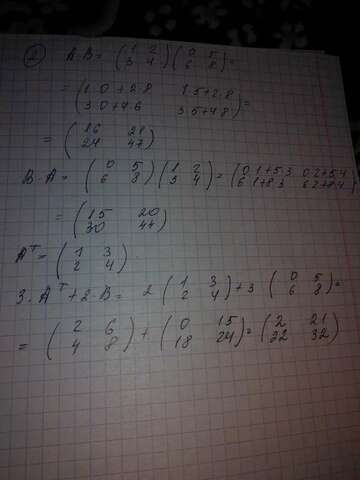 ② A·B = (1 2 3 4)(0 5 6 8) =
= (1·0+2·8 1·5+2·8 3·0+4·6 3·5+4·8) =
= (16 21 24 47)
B·A = (0 5 6 8)(1 2 3 4) = (0·1+5·3 0·2+5·4 6·1+8·3 6·2+8·4)
= (15 20 30 44)
Aᵀ = (1 3 2 4)
3·Aᵀ+2·B = 2(1 3 2 4)+3(0 5 6 8)=
= (2 6 4 8) + (0 15 18 24) = (2 21 22 32)